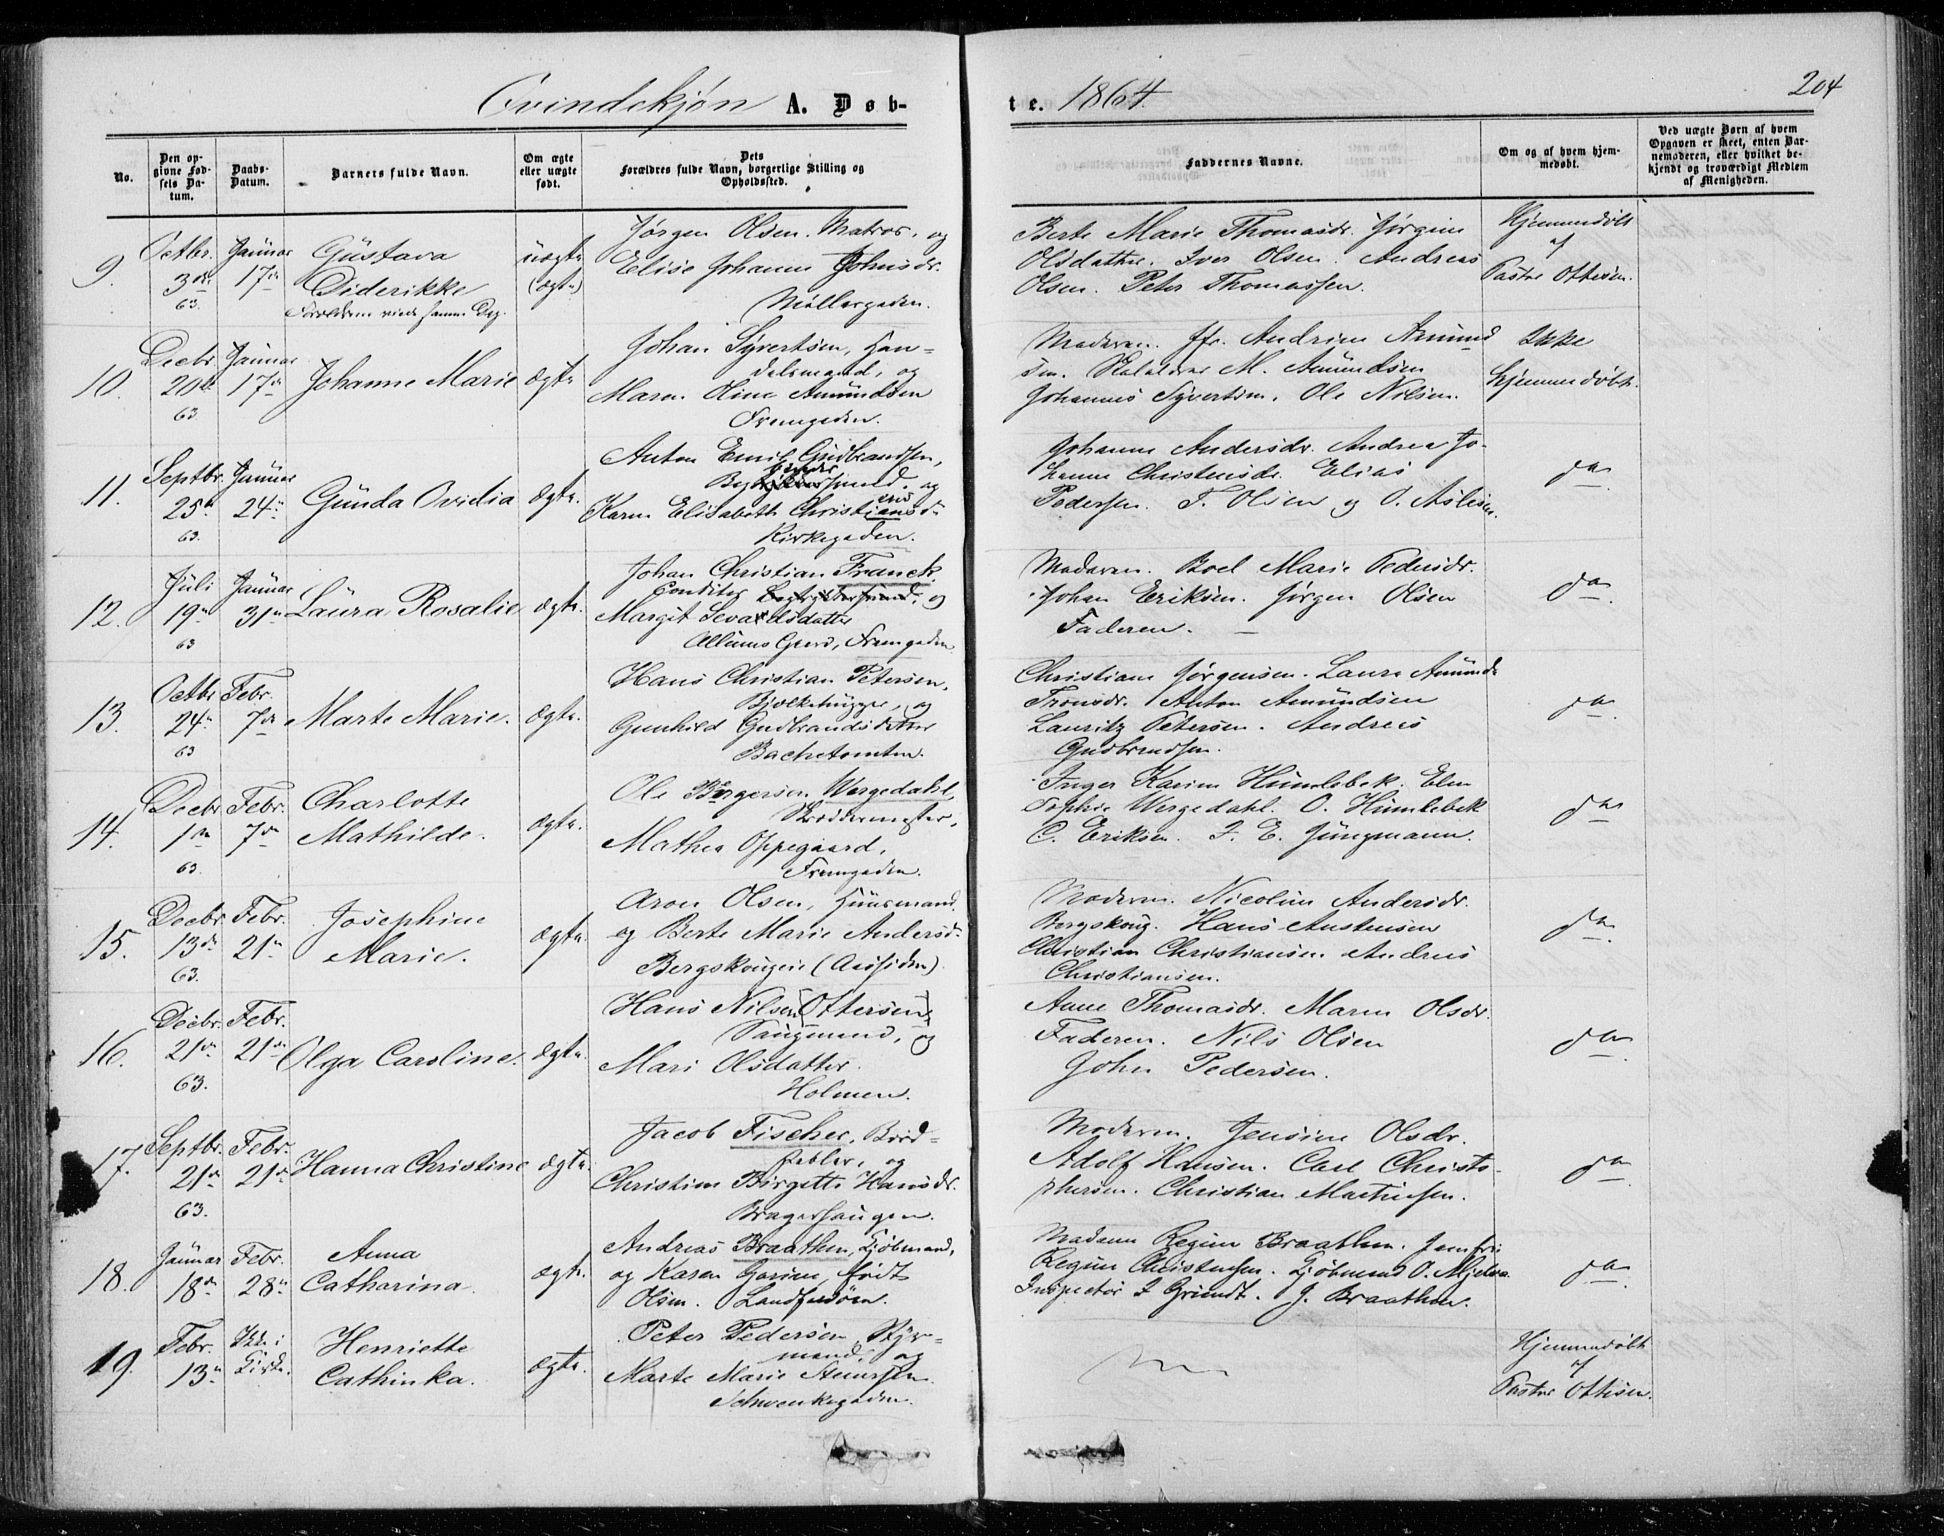 Qvindekjøn A. Døb-
te. 1864.
204
No.
Den op-
givne Fød-
sels Da-
tum.
Daabs-
Datum.
Barnets fulde Navn.
Om ægte
eller uægte
født.
Dets
Forældres fulde Navn, borgerlige Stilling og
Opholdssted.
Faddernes Navne.
Om og af hvem hjem-
medøbt.
Ved uægte Børn af hvem
Opgaven er skeet, enten Bar-
nemoderen, eller hvilket be-
kjendt og troværdigt Medlem
af Menigheden.
9.
Octbr.
3die
63.
Januar
17de
Gustava
Diderikke
Forældrene viede samme Dag.
uægte
(ægte)
Jørgen Olsen. Matros, og
Elise Johanne Johnsdr.
Møllergaden.
Berte Marie Thomasdr. Jørgine
Olsdatter. Iver Olsen. Andreas
Olsen. Peter Thomassen.
Hjemmedøbt
af
Pastor Ottesen.
10.
Decbr
20de
63
Januar
17de
Johanne Marie
ægte
Johan Syvertsen, Han-
delsmand, og
Maren Oline Amundsen
Fremgaden.
Moderen. Jfr. Andrine Amund
sen. M. Amundsen
Johannes Syvertsen. Ole Nilsen.
Ikke
hjemmedøbt.
11.
Septbr.
25de
63.
Januar
24de
Gunda Ovidia
ægte.
Anton Emil Gudbrandsen,
og
Karen Elisabeth Christiansd.
Kirkegaden.
Johanne Andersdr. Andrea Jo-
hanne Christensdr. Elias
Pedersen. T. Olsen og O. Aslesen.
do
12.
Juli
19de
63
Januar
31te
Laura Rosalie
ægte.
Johan Christian Franck,
Conditor og
Margit Sevaldsdatter
Allums Gaard, Fremgaden
Moderen. Boel Marie Pedersdr.
Johan Eriksen. Jørgen Olsen
Faderen.
do
13.
Octbr
24de
63
Febr.
7de
Marte Marie.
ægte.
Hans Christian Petersen,
Bjelkehugger, og
Gunhild Gudbrandsdatter
Bachetomten.
Christiane Jørgensen. Laura Amunds
Tronsdr. Anton Amundsen
Lauritz Petersen. Andreas
Gudbrandsen.
do
14.
Decbr
1ste
63.
Febr.
7de
Charlotte
Mathilde.
ægte.
Ole Børgersen Wergedahl,
Skræddermester,
Mathea Oppegaard,
Fremgaden.
Inger Karine Humlebek. Elen
Sophie Wergedahl. O. Humlebek
C. Eriksen. J. E. Jüngmann.
do
15.
Decbr.
13de
63.
Febr.
21de
Josephine
Marie.
ægte.
Aron Olsen, Huusmand
og Berte Marie Andersd.
Bergskougeie (Aassiden).
Moderen. Nicoline Andersdr.
Bergskoug. Hans Austensen
Christian Christiansen. Andreas
Christiansen.
do
16.
Decbr.
21de
63.
Febr.
21de
Olga Caroline.
ægte.
Hans Nilsen (Ottersen),
Saugmand, og
Mari Olsdatter.
Holmen.
Anne Thomasdr. Maren Olsdr.
Faderen. Nils Olsen
John Pedersen.
do
17.
Septbr.
21de
63.
Febr.
21de
Hanna Christine
ægte.
Jacob Fischer, Brød-
og
Christine Birgitte Hansdr.
Bragerhaugen.
Moderen. Jensine Olsdr.
Adolf Hansen. Carl Christo-
phersen. Christian Mathiesen.
do
18.
Januar
18de
Febr.
28de
Anna
Catharina.
ægte.
Andreas Braathen, Kjøbmand,
og Karen Gorine, født
Olsen. Landfaldøen.
Madame Regine Braathen. Jomfru
Regine Christensen. Kjøbmand O. Mjelva
Inspector J Grundt. J. Braathen.
do
19.
Febr.
13de
Ikke i
Kirke.
Henriette
Cathinka.
ægte.
Peter Pedersen, Styr-
mand, og
Marte Marie Steensen
Schwenkegaden.
Hjemmedøbt
af
Pastor Ottesen.